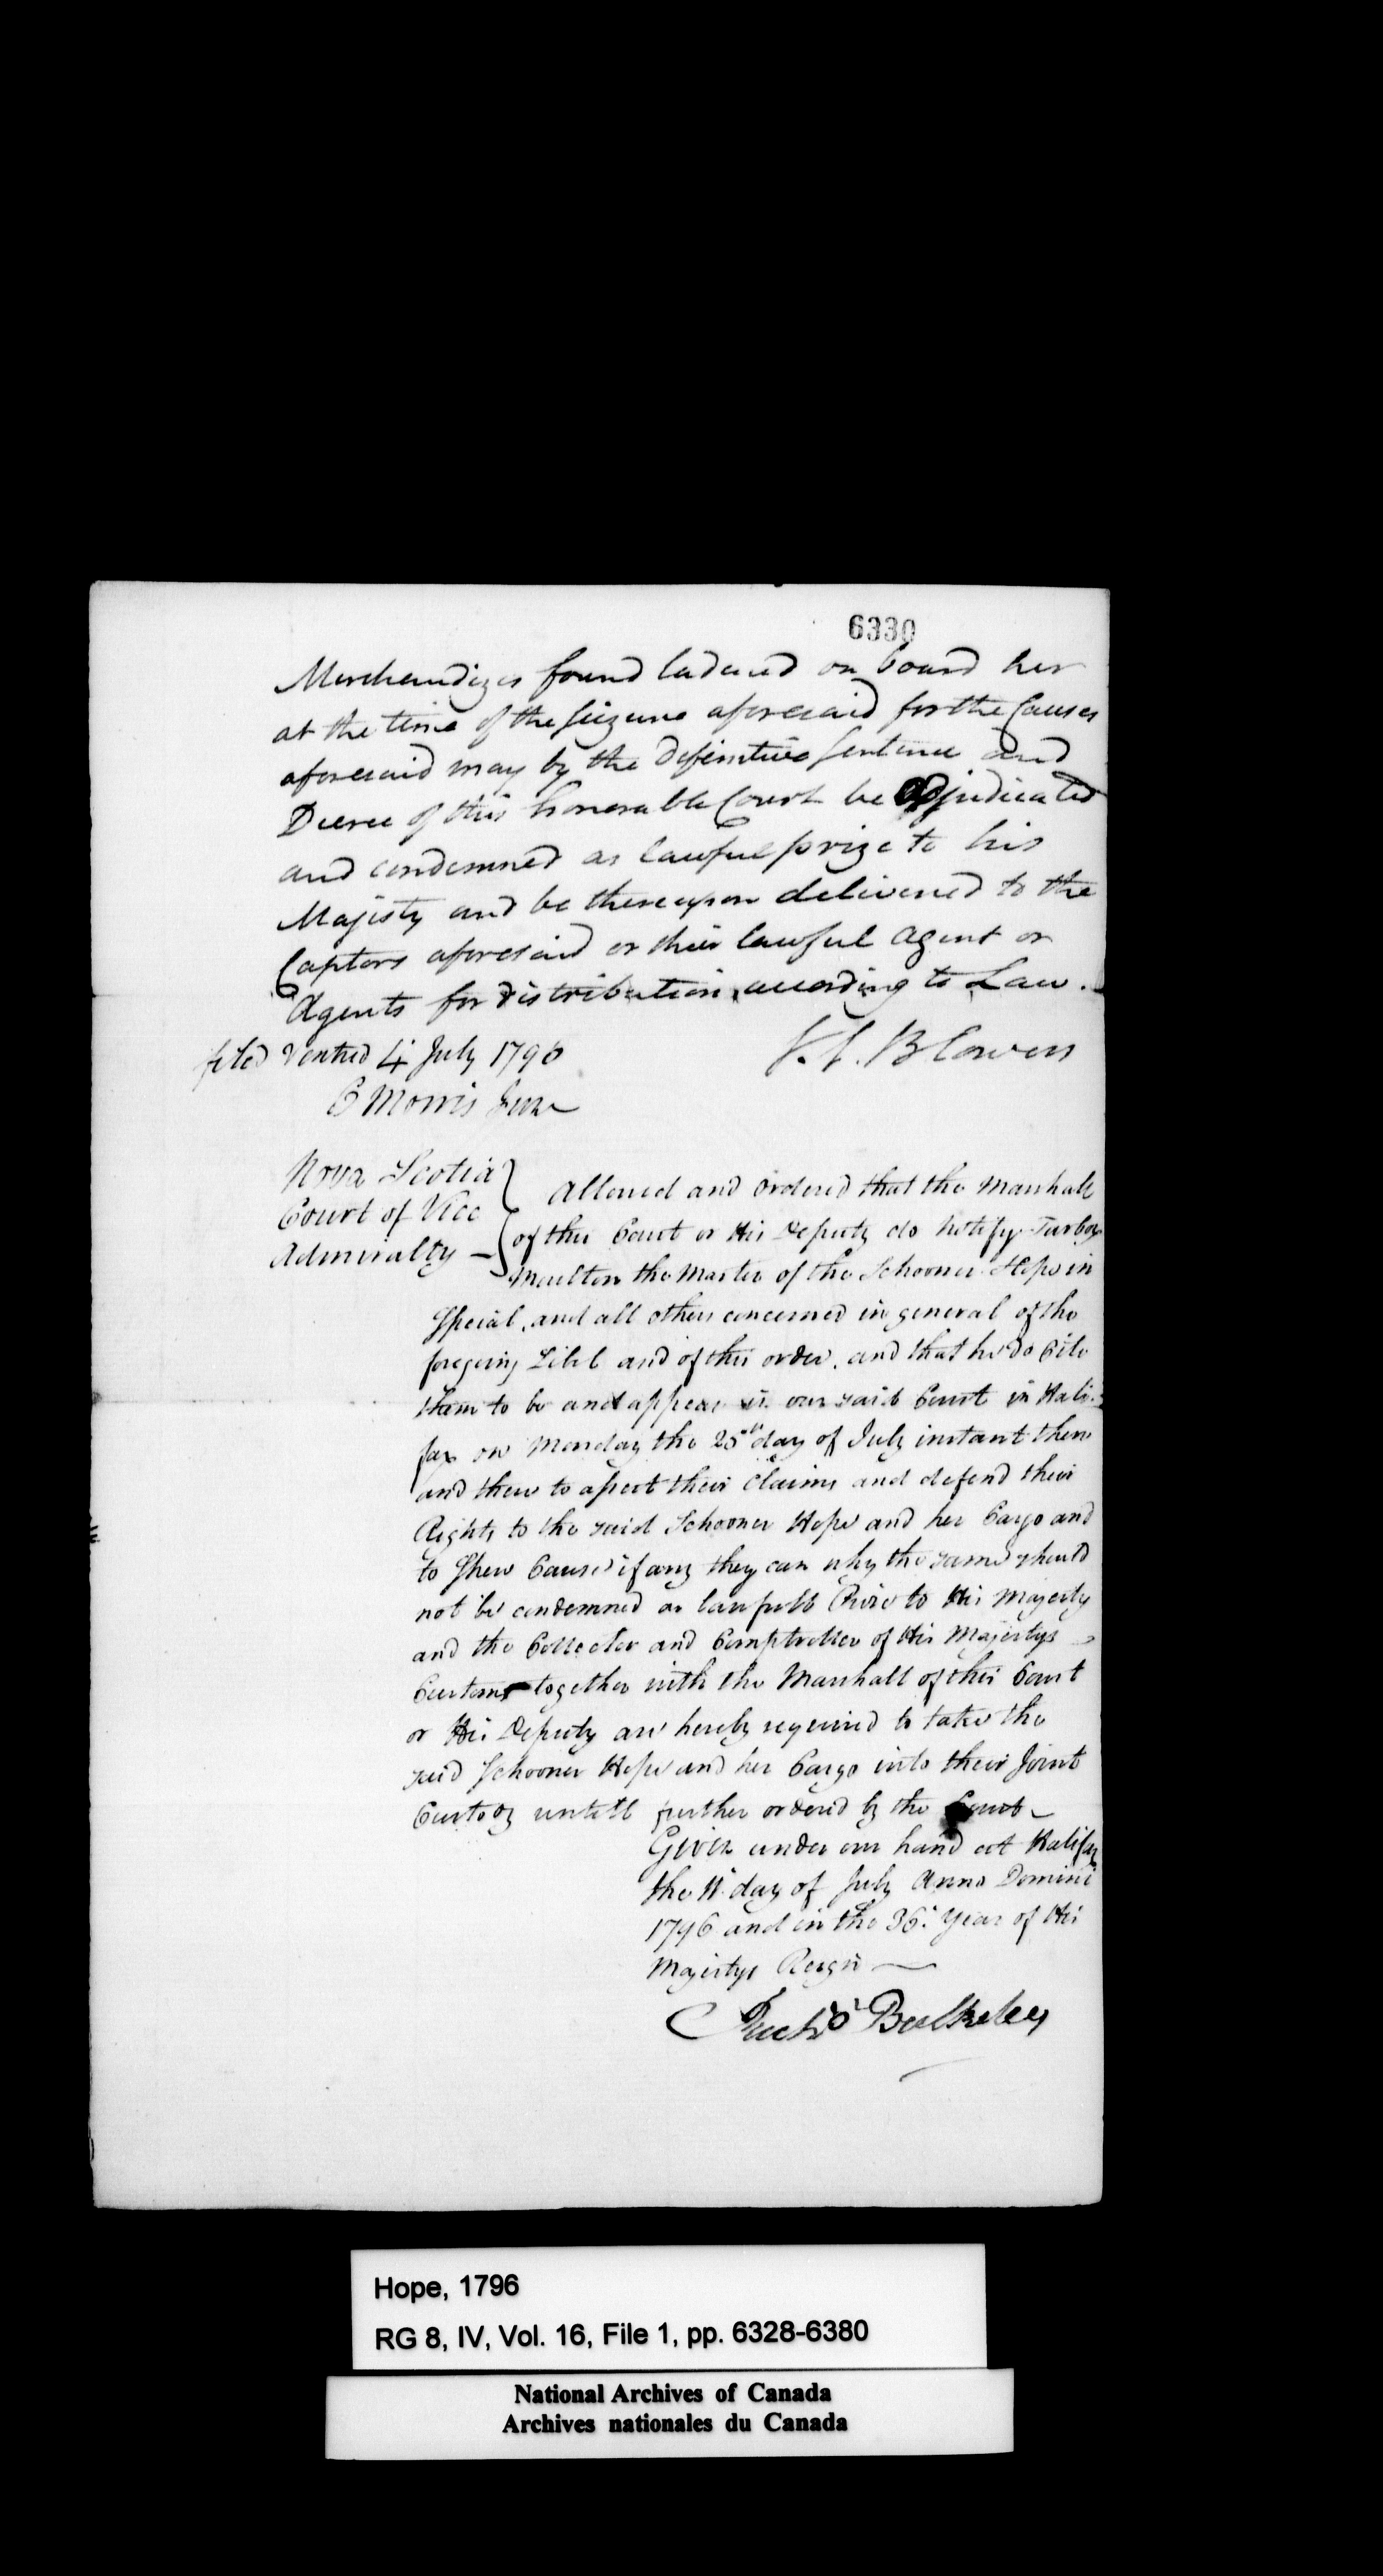 6330
Merchandizes found ladened on board her
at the time of the Seizure aforesaid for the Causes
aforesaid may by the Definitive Sentence and
Decree of this honorable Court be adjudicated
and condemned as lawful prize to his
Majesty and be thereupon delivered to the
Captors aforesaid or their lawful Agent or
Agents for distribution according to Law.
S. S. Blowers
filed & entred 4 July 1796
C Morris Junr
Nova Scotia
Court of Vice
Admiralty
Allowed and ordered that the Marshall
of this Court or His Deputy do notify
Moulton the Master of the Schooner Hope in
Special, and all others concerned in general of the
foregoing Libel and of this order. and that he do Cite
them to be and appear in our said Court in Hali-
fax on Monday the 25th day of July instant then
and there to assert their Claims and defend their
Rights to the said Schooner Hope and her Cargo and
to Shew Cause if any they can why the same should
not be condemned as lawfull Prize to His Majesty
and the Collector and Comptroller of His Majestys
Customs together with the Marshall of this Court
or His Deputy are hereby required to take the
said Schooner Hope and her Cargo into their Joint
Custody untill further ordered by the Court
Given under our hand at Halifax
the day of July Anno Domini
1796 and in the 36. Year of His
Majestys Reign
Richd Bulkeley
Hope, 1796
RG 8, IV, Vol. 16, File 1, pp. 6328-6380
National Archives of Canada
Archives nationales du Canada